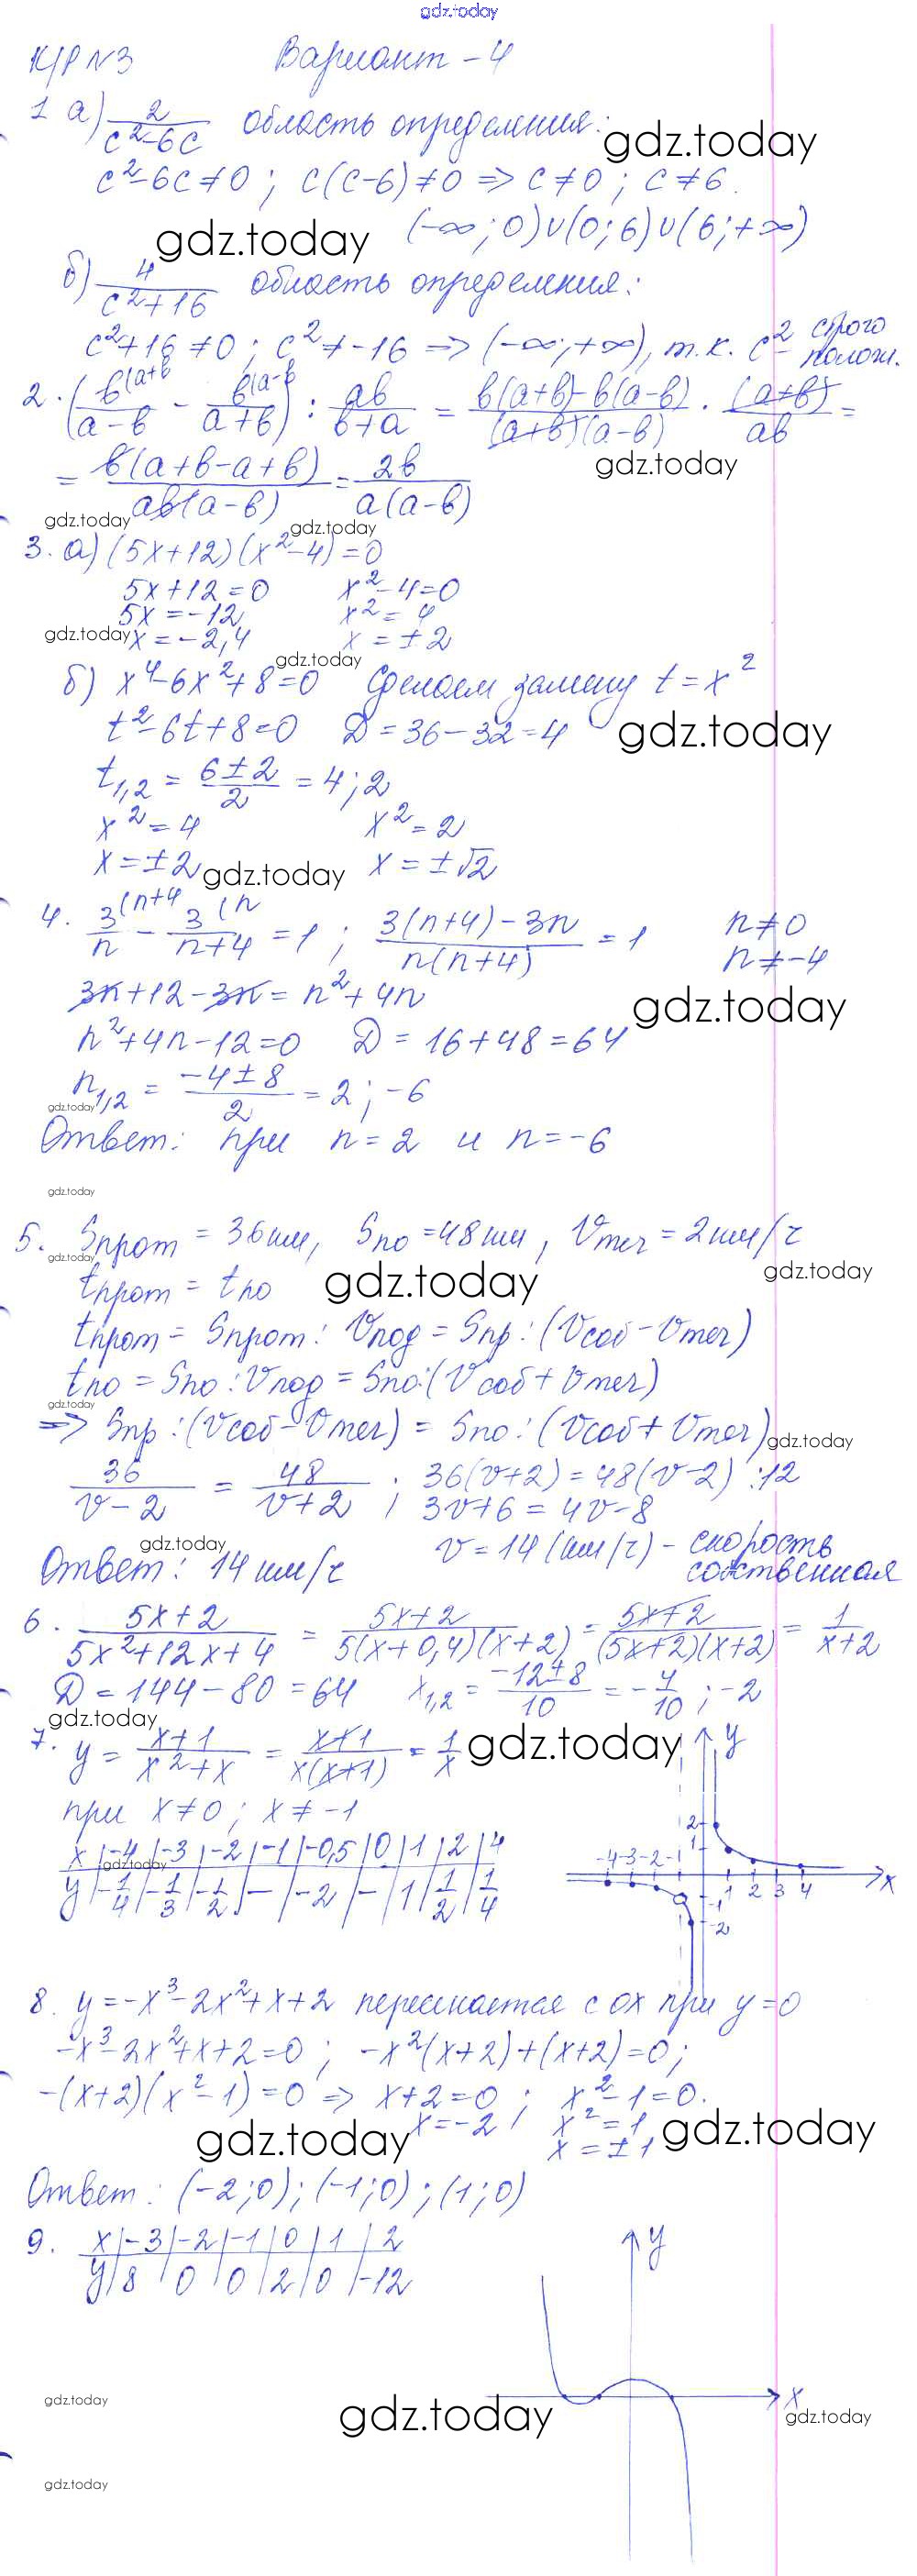 gdz.today
К/Р №3 Вариант - 4
1 а) 2/(c²-6c) область определения:
gdz.today
c²-6c≠0 ; c(c-6)≠0 => c≠0 ; c≠6.
gdz.today (-∞;0)∪(0;6)∪(6;+∞)
б) 4/(c²+16) область определения:
c²+16≠0 ; c²≠-16 => (-∞;+∞), т.к. c² - строго полож.
2. (в(а+в/(а-в) - в(а-в/(а+в)) : ав/(в+а) = (в(а+в)-в(а-в))/((а+в)(а-в)) · (а+в)/ав =
gdz.today
= в(а+в-а+в)/(ав(а-в)) = 2в/(а(а-в))
gdz.today gdz.today
3. а) (5x+12)(x²-4)=0
5x+12=0 x²-4=0
5x=-12 x²=4
gdz.today x=-2,4 x=±2
gdz.today
б) x⁴-6x²+8=0 Сделаем замену t=x²
t²-6t+8=0 D=36-32=4 gdz.today
t₁,₂ = (6±2)/2 = 4;2
x²=4 x²=2
x=±2 gdz.today x=±√2
4. 3(n+4/n - 3(n/(n+4) = 1 ; (3(n+4)-3n)/(n(n+4)) = 1 n≠0
n≠-4
3n+12-3n = n²+4n gdz.today
n²+4n-12=0 D=16+48=64
n₁,₂ = (-4±8)/2 = 2 ; -6
gdz.today
Ответ: при n=2 и n=-6
gdz.today
5. Sпрот = 36 км, Sпо = 48 км, Vтеч = 2 км/ч
gdz.today gdz.today
tпрот = tпо gdz.today
tпрот = Sпрот : Vлод = Sпр : (Vсоб - Vтеч)
tпо = Sпо : Vлод = Sпо : (Vсоб + Vтеч)
gdz.today
=> Sпр : (Vсоб - Vтеч) = Sпо : (Vсоб + Vтеч)
gdz.today
36/(v-2) = 48/(v+2) ; 36(v+2) = 48(v-2) :12
3v+6 = 4v-8
gdz.today v=14 (км/ч) - скорость собственная
Ответ: 14 км/ч
6. (5x+2)/(5x²+12x+4) = (5x+2)/(5(x+0,4)(x+2)) = (5x+2)/((5x+2)(x+2)) = 1/(x+2)
D=144-80=64 x₁,₂ = (-12±8)/10 = -4/10 ; -2
gdz.today
7. y = (x+1)/(x²+x) = (x+1)/(x(x+1)) = 1/x gdz.today y
при x≠0 ; x≠-1
x | -4 | -3 | -2 | -1 | -0,5 | 0 | 1 | 2 | 4
gdz.today
y | -1/4 | -1/3 | -1/2 | - | -2 | - | 1 | 1/2 | 1/4
2
1
-4 -3 -2 -1
1 2 3 4 x
-1
-2
8. y=-x³-2x²+x+2 пересекается с ОХ при y=0
-x³-2x²+x+2=0 ; -x²(x+2)+(x+2)=0 ;
-(x+2)(x²-1)=0 => x+2=0 ; x²-1=0.
gdz.today x=-2 ; x²=1 gdz.today
x=±1
Ответ: (-2;0); (-1;0); (1;0)
9. x | -3 | -2 | -1 | 0 | 1 | 2
y | 8 | 0 | 0 | 2 | 0 | -12
y
x
gdz.today gdz.today gdz.today
gdz.today